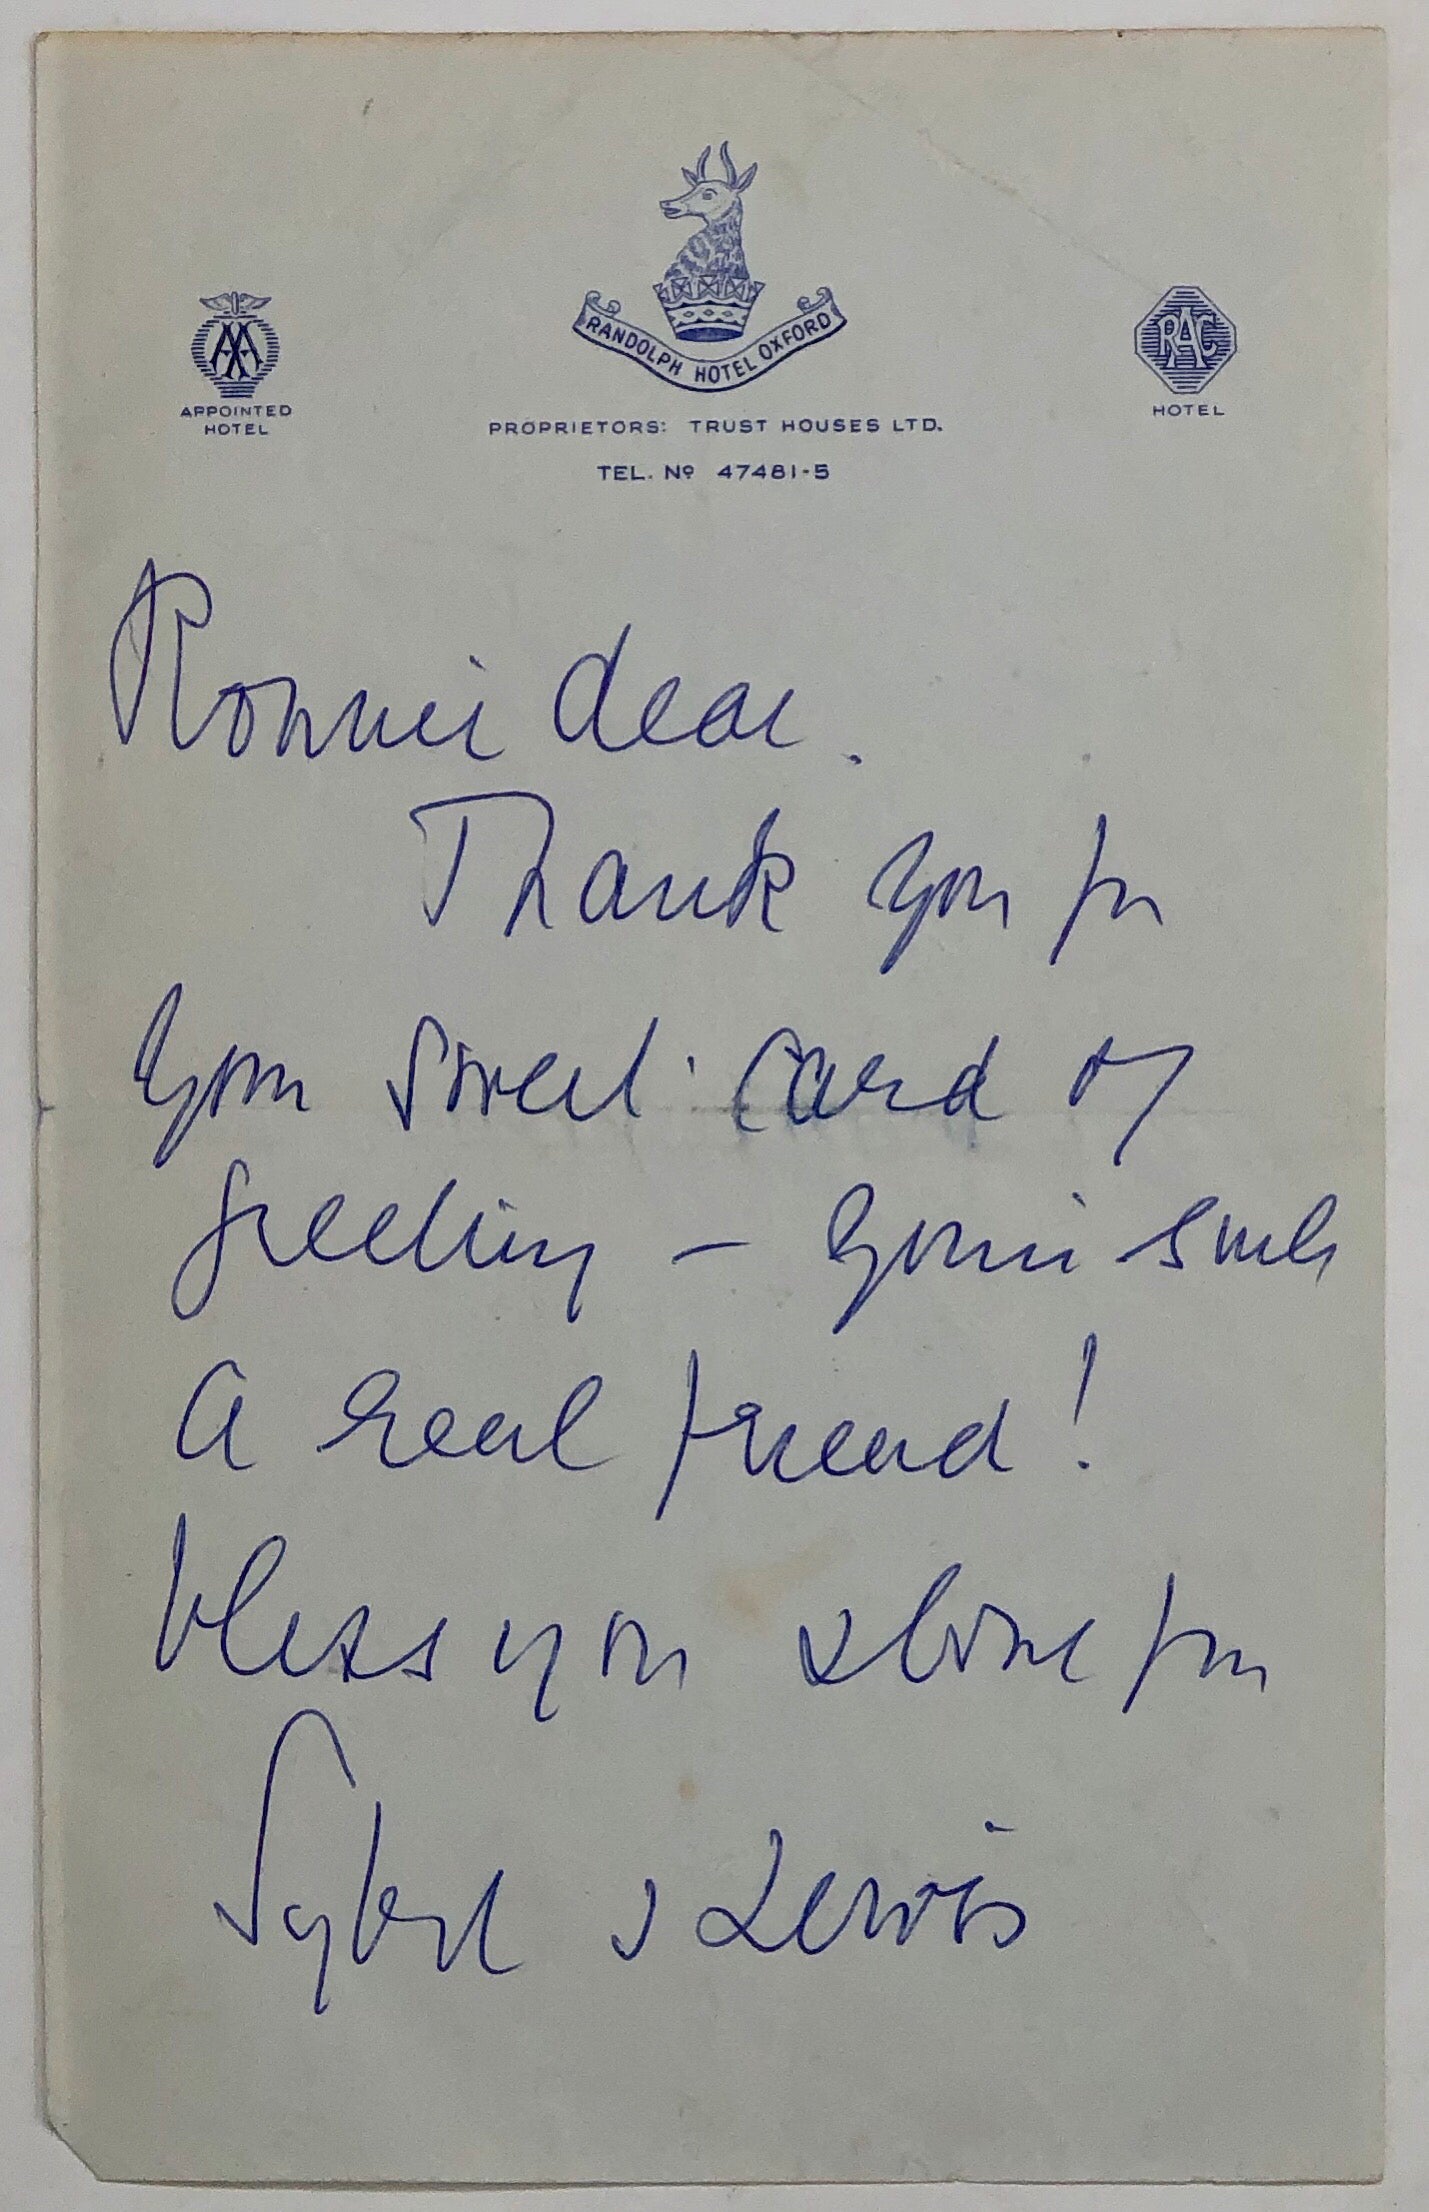 RANDOLPH HOTEL OXFORD
AA
APPOINTED
HOTEL
RAC
HOTEL
PROPRIETORS: TRUST HOUSES LTD.
TEL. Nº 47481-5
Ronnie dear.
Thank you for
your sweet card of
greeting – you're such
a real friend!
bless you & love from
Sybil & Lewis